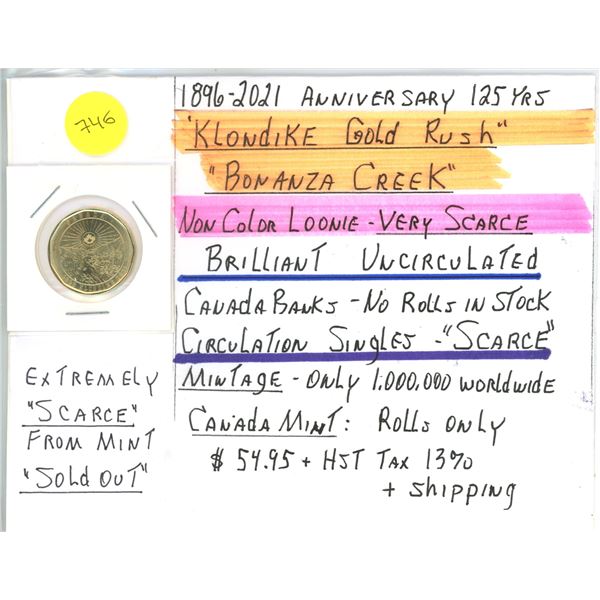 746
1896-2021 ANNIVERSARY 125 YRS
'KLONDIKE GOLD RUSH"
"BONANZA CREEK"
NON COLOR LOONIE - VERY SCARCE
BRILLIANT UNCIRCULATED
CANADA BANKS - NO ROLLS IN STOCK
CIRCULATION SINGLES - "SCARCE"
MINTAGE - ONLY 1,000,000 WORLDWIDE
CANADA MINT: ROLLS ONLY
$ 54.95 + HST TAX 13%
+ SHIPPING
EXTREMELY
"SCARCE"
FROM MINT
"SOLD OUT"